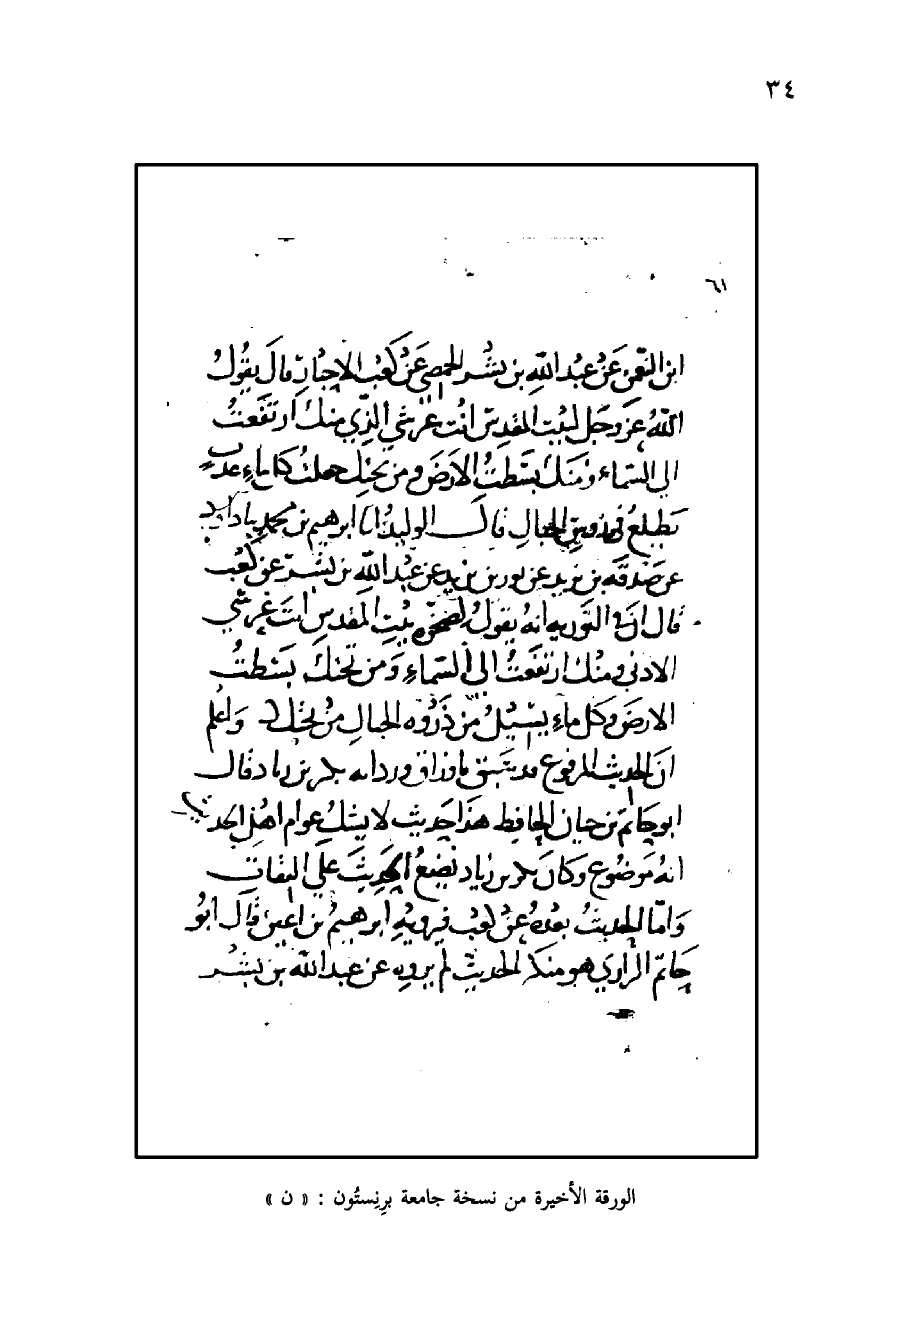 ٣٤
٦١
ابن اعين عن عبد الله بن بشر الحمصي عن كعب الاحبار قال يقول
الله عز وجل لبيت المقدس انت عرشي الذي منك ارتفعت
الى السماء ومنك بسطت الارض ومن تحتك جعلت كل ماء عذب
يطلع في رؤوس الجبال قال الوليد انا ابرهيم بن محمد
عن صدقه بن يزيد عن ثور بن يزيد عن عبد الله بن بشر عن كعب
قال ان في التوريه انه يقول لصخره بيت المقدس انت عرشي
الادنى ومنك ارتفعت الى السماء ومن تحتك بسطت
الارض وكل ماء يسيل من ذروه الجبال من تحتك واعلم
ان الحديث المرفوع قد بكر بن زياد قال
ابو حاتم بن حبان الحافظ هذا حديث لا يشك عوام اهل الحديث
انه موضوع وكان بكر بن زياد يضع الحديث على الثقات
واما الحديث بعده عن كعب فيرويه ابرهيم بن اعين قال ابو
حاتم الرازي هو منكر الحديث لم يروه عن عبد الله بن بشر
الورقة الأخيرة من نسخة جامعة برِنِستُون : « ن »